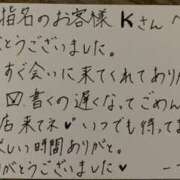 指名のお客様 Kさんへ
がとうございました。
すぐ会いに来てくれてありが
回 書くの遅くなってごめん
店来てネ♥いつでも待ってま
しい時間ありがと。
がとうございました♥